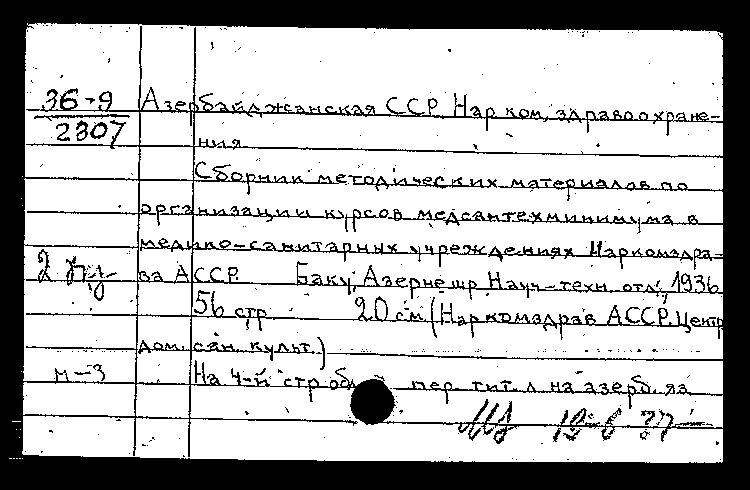 36-9 Азербайджанская ССР. Нар.ком. здравоохране-
2307 ния
Сборник методических материалов по
организации курсов медсантехминимума в
медико-санитарных учреждениях Наркомздра-
2 ва АССР. Баку, Азернешр Науч-техн. отд., 1936
56 стр 20 см. (Наркомздрав АССР. Центр
дом. сан. культ.)
м-3 На 4-й стр обл пер. тит. л на азерб. яз
19-6 37